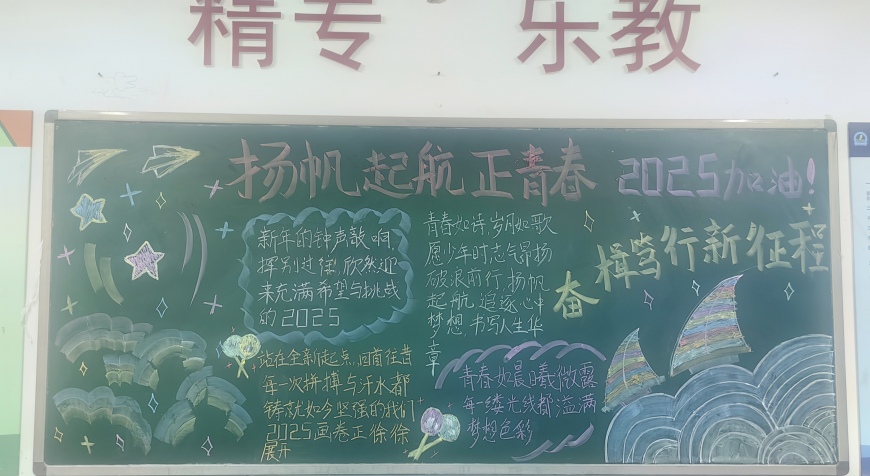 精专 乐教
扬帆起航正青春 2025加油!
新年的钟声敲响
挥别过往,欣然迎
来充满希望与挑战
的2025
青春如诗岁月如歌
愿少年时志气昂扬
破浪前行,扬帆
起航,追逐心中
梦想,书写人生华
章
奋楫笃行新征程
站在全新起点,回首往昔
每一次拼搏与汗水都
铸就如今坚强的我们
2025画卷正徐徐
展开
青春如晨曦微露
每一缕光线都溢满
梦想色彩